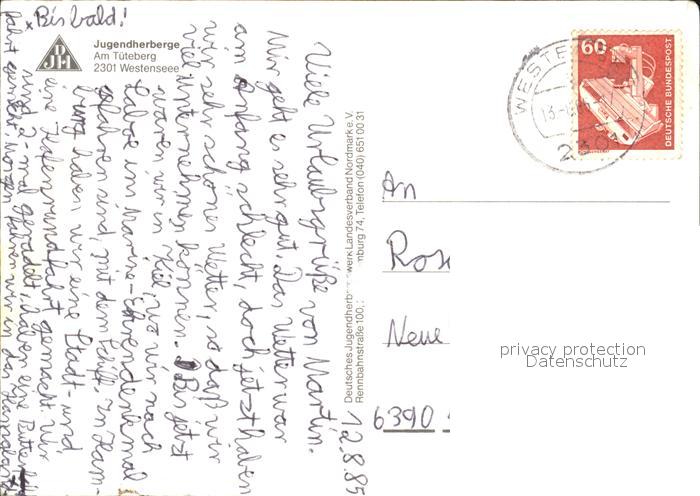 Bis bald!
DJH
Jugendherberge
Am Tüteberg
2301 Westensee
12.8.85
Viele Urlaubsgrüße von Martin.
Mir geht es sehr gut. Das Wetter war
am Anfang schlecht, doch jetzt haben
wir sehr schönes Wetter, so daß wir
viel unternehmen können. Bis jetzt
waren wir in Kiel, wo wir nach
Laboe im Marine-Ehrendenkmal
gefahren sind, mit dem Schiff. In Ham-
burg haben wir eine Stadt- und
eine Hafenrundfahrt gemacht. Wir
sind 2-mal geradelt, haben eine Butter-
fahrt gemacht. Morgen fahren wir in das
Deutsches Jugendherbergswerk Landesverband Nordmark e.V.
Rennbahnstraße 100, mburg 74, Telefon (040) 651 00 31
60
DEUTSCHE BUNDESPOST
WESTE
13.
230
An
Ros
Neue
6390
privacy protection
Datenschutz